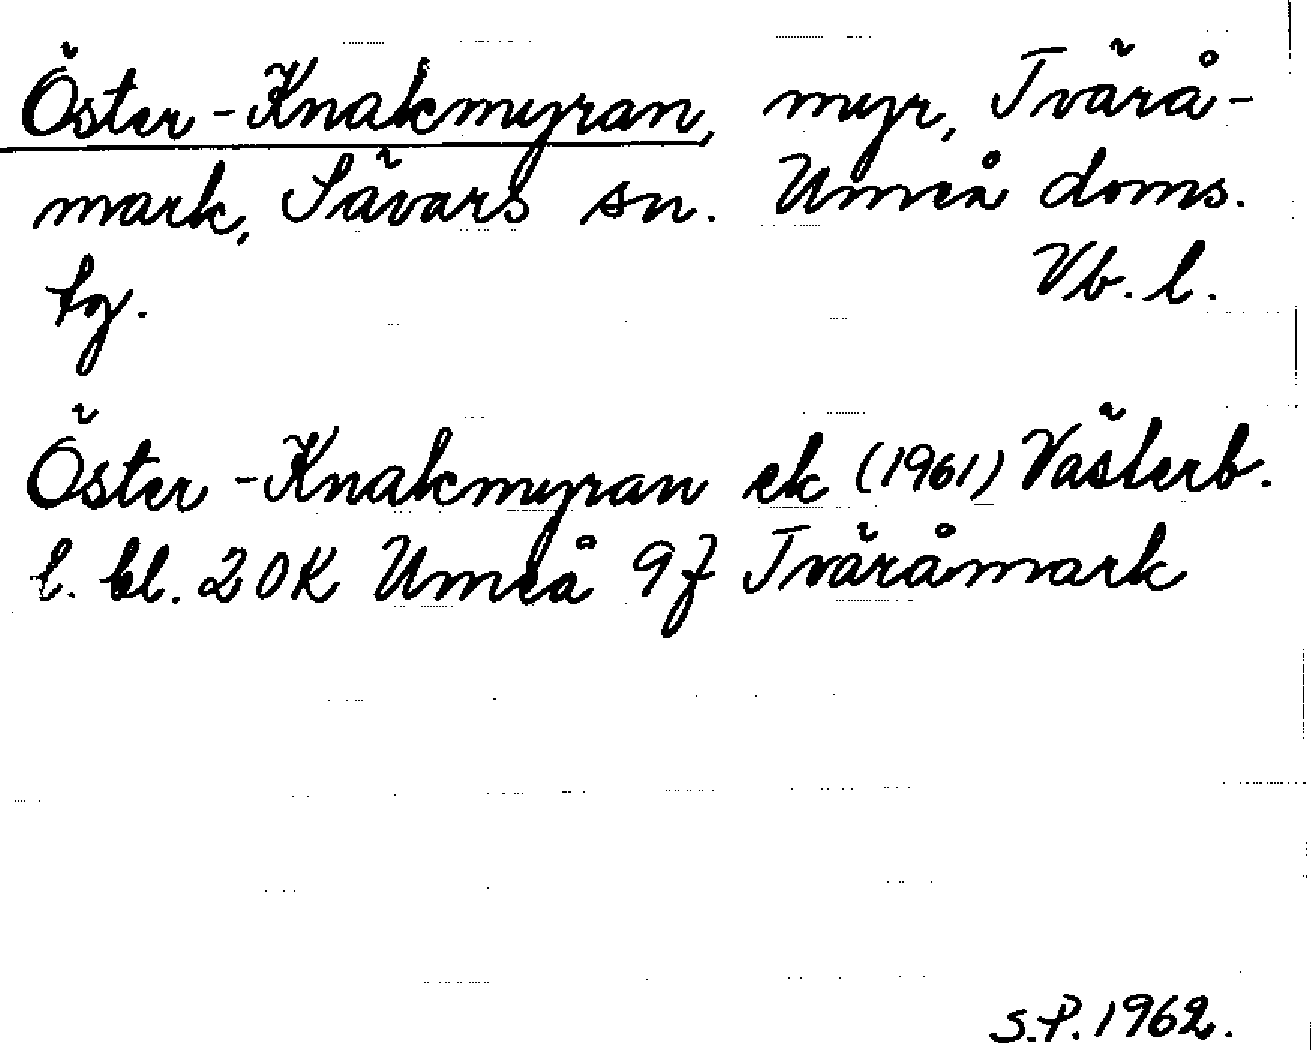 Öster-Knakmyran, myr, Tvärå-
mark, Sävars sn. Umeå doms.
tg. Vb. l.
Öster-Knakmyran ek (1961) Västerb.
l. bl. 20K Umeå 9f Tväråmark
S.P. 1962.